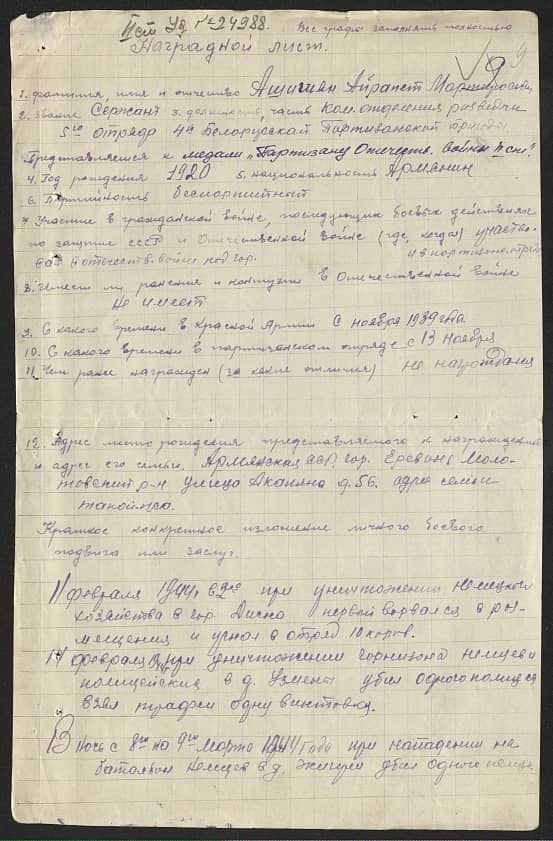 II ст Уд №24988. Все графы заполнять полностью
Наградной лист.
9
1. фамилия, имя и отчество Ашигиян Айрапет
2. звание Сержант 3. должность, часть ком. отделения разведки
5го отряда 4й Белорусской Партизанской бригады
Представляется к медали „Партизану Отечеств. войны II ст"
4. Год рождения 1920 5. национальность Армянин
6. Партийность беспартийный
7. Участие в гражданской войне, последующих боевых действиях
по защите СССР и Отечественной войне (где, когда) участво-
вал в отечеств. войне под гор. и в партизанс. отряде
8. Имеет ли ранения и контузии в Отечественной войне
Не имеет
9. С какого времени в Красной Армии С ноября 1939 года
10. С какого времени в партизанском отряде с 13 ноября
11. Чем ранее награжден (за какие отличия) не награждался
12. Адрес место рождения представляемого к награждению
и адрес его семьи. Армянская ССР, гор. Ереван Моло-
товский р-н улица Акопяна д. 56. адрес семьи
такой-же.
Краткое конкретное изложение личного боевого
подвига или заслуг.
11 февраля 1944г. при уничтожении немецкого
хозяйства в гор. Дисно первый ворвался в по-
мещения и угнал в отряд 10 коров.
14 февраля при уничтожении горнизона немцев и
полицейских в д. Узмены убил одного полицая
взял трофеи одну винтовку.
В Ночь с 8го на 9ое Марта 1944 года при нападении на
батальон Немцев в д. убил одного немца